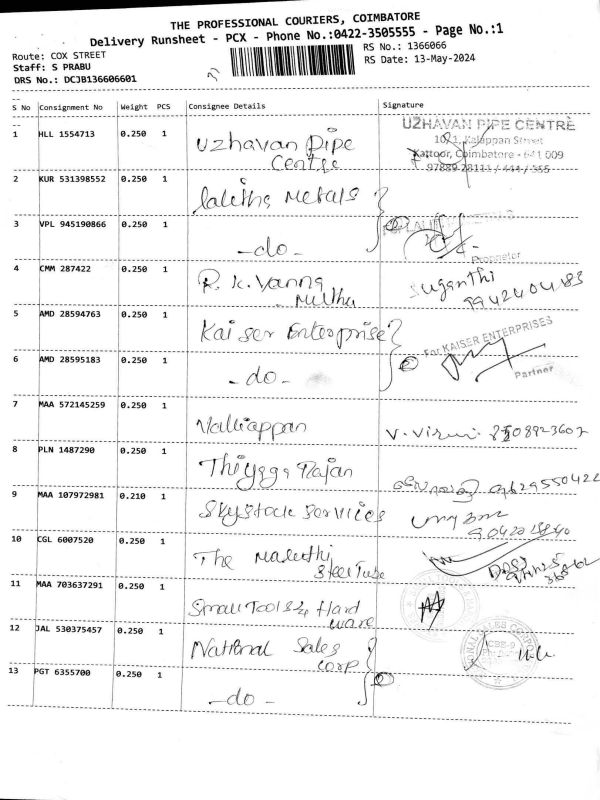 THE PROFESSIONAL COURIERS, COIMBATORE
Delivery Runsheet - PCX - Phone No.:0422-3505555 - Page No.:1
Route: COX STREET
RS No.: 1366066
Staff: S PRABU
RS Date: 13-May-2024
DRS No.: DCJB136606601
S No Consignment No Weight PCS Consignee Details Signature
1 HLL 1554713 0.250 1 Uzhavan Pipe Centre
UZHAVAN PIPE CENTRE
Kalappan Street
Kattoor, Coimbatore - 641 009
2 KUR 531398552 0.250 1 Lalitha Metals
3 VPL 945190866 0.250 1 -do-
Proprietor
4 CMM 287422 0.250 1 R.K. Vanna
Suganthi
9942404183
5 AMD 28594763 0.250 1 Kaiser Enterprise
For KAISER ENTERPRISES
6 AMD 28595183 0.250 1 -do-
Partner
7 MAA 572145259 0.250 1 Valliappan
8 PLN 1487290 0.250 1 Thiyaga Rajan
9 MAA 107972981 0.210 1 Skystock Services
10 CGL 6007520 0.250 1 The Maruthi
Steel Tube
11 MAA 703637291 0.250 1 Small Tools & Hard
ware
12 JAL 530375457 0.250 1 National Sales
Corp
13 PGT 6355700 0.250 1 -do-